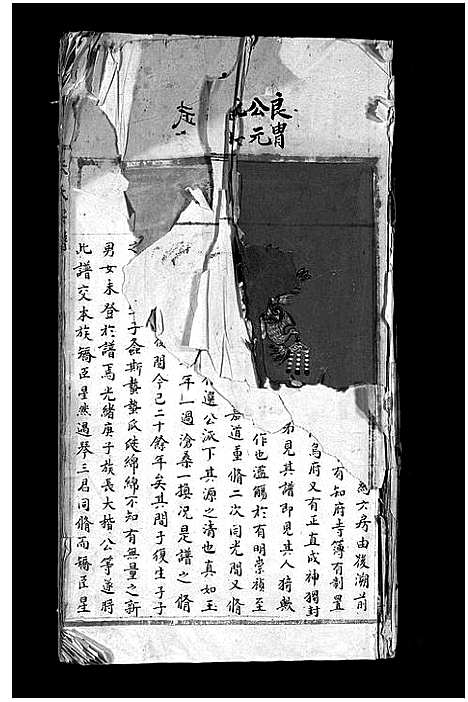 良冑
公元
六房由後湖前
有知府寺簿有制置
府又有正直成神獨封
見其譜即見其人猗歟
作也濫觴於有明崇禎至
嘉道重脩二次同光間又脩
選公派下其源之清也真如玉
年一過滄桑一換况是譜之脩
後閱今已二十餘年矣其間子復生子子
子螽斯蟄蟄瓜瓞綿綿不知有無量之新
男女未登於譜焉光緒庚子族長大楷公等遂將
此譜交本族矞臣星然遇琴三君同脩而矞臣星